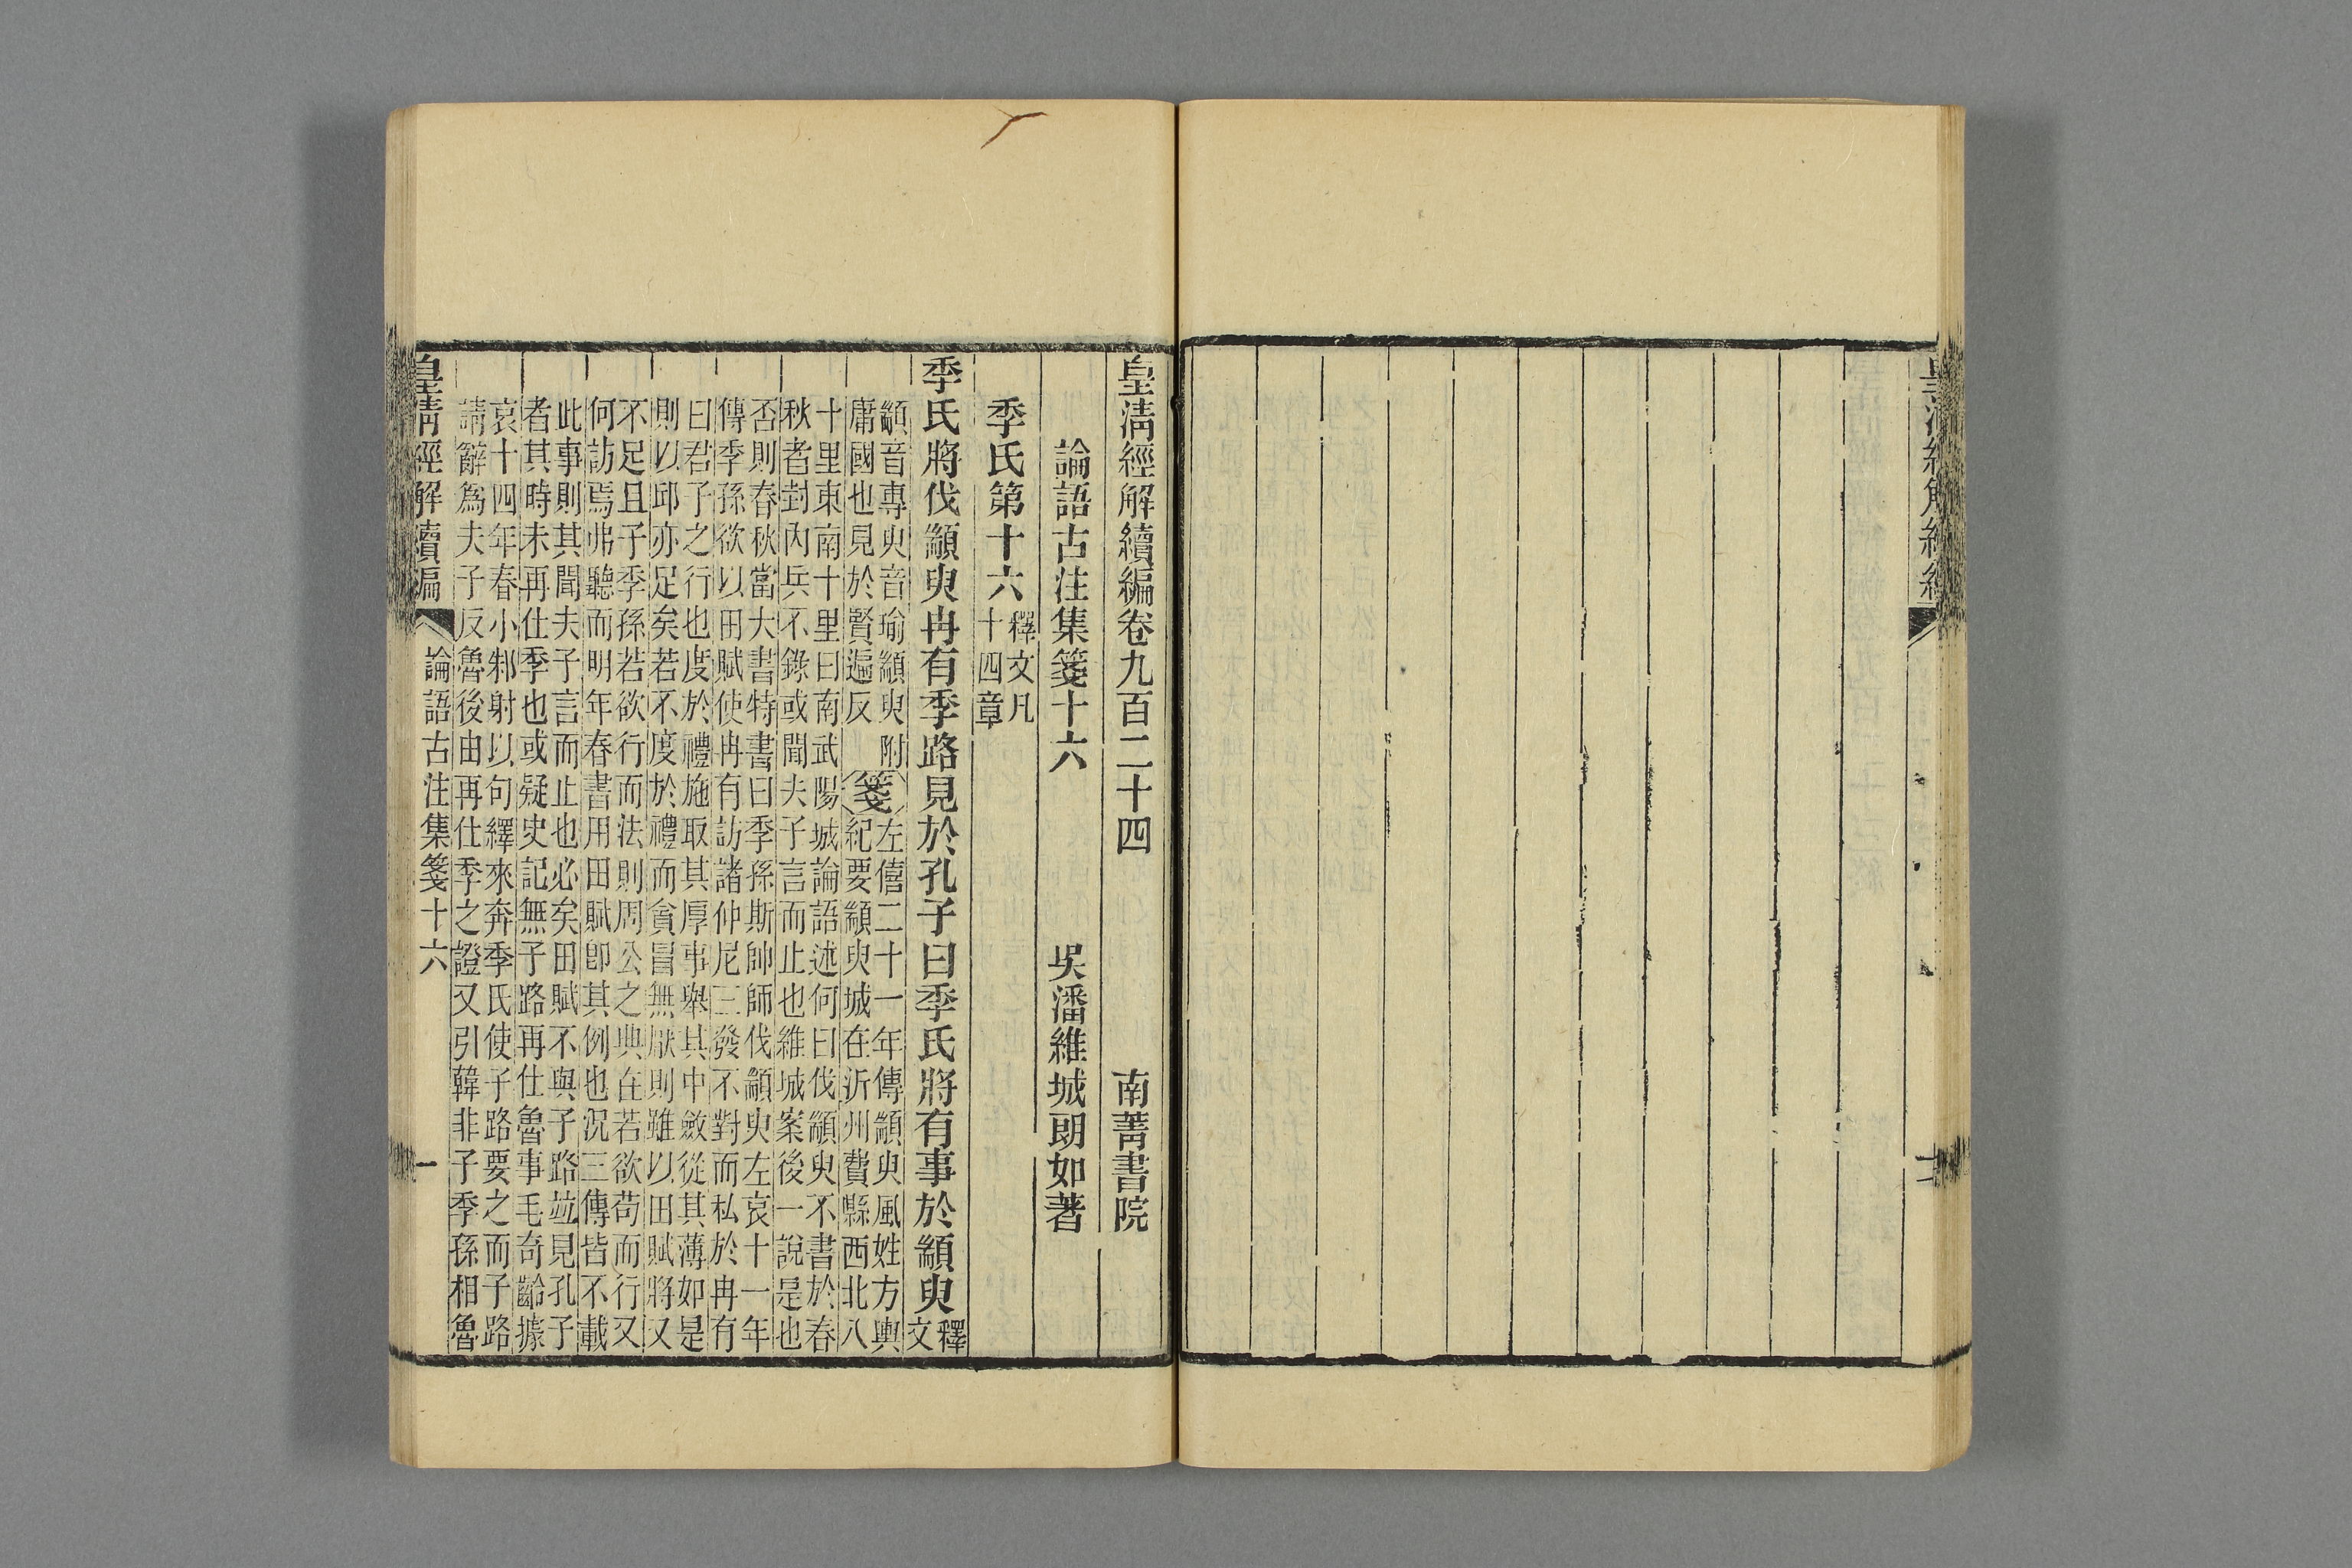 皇清經解續編卷九百二十四 南菁書院
論語古注集箋十六 吳潘維城朗如著
季氏第十六 釋文凡
十四章
季氏將伐顓臾冉有季路見於孔子曰季氏將有事於顓臾 釋
文
顓音專臾音瑜顓臾附
庸國也見於賢遍反
箋
左僖二十一年傳顓臾風姓方輿
紀要顓臾城在沂州費縣西北八
十里東南十里曰南武陽城論語述何曰伐顓臾不書於春
秋者封內兵不錄或聞夫子言而止也維城案後一說是也
否則春秋當大書特書曰季孫斯帥師伐顓臾左哀十一年
傳季孫欲以田賦使冉有訪諸仲尼三發不對而私於冉有
曰君子之行也度於禮施取其厚事舉其中斂從其薄如是
則以邱亦足矣若不度於禮而貪冒無厭則雖以田賦將又
不足且子季孫若欲行而法則周公之典在若欲苟而行又
何訪焉弗聽而明年春書用田賦卽其例也況三傳皆不載
此事則其聞夫子言而止也必矣田賦不與子路竝見孔子
者其時未再仕季也或疑史記無子路再仕魯事毛奇齡據
哀十四年春小邾射以句繹來奔季氏使子路要之而子路
請辭爲夫子反魯後由再仕季之證又引韓非子季孫相魯
皇清經解續編 論語古注集箋十六 一